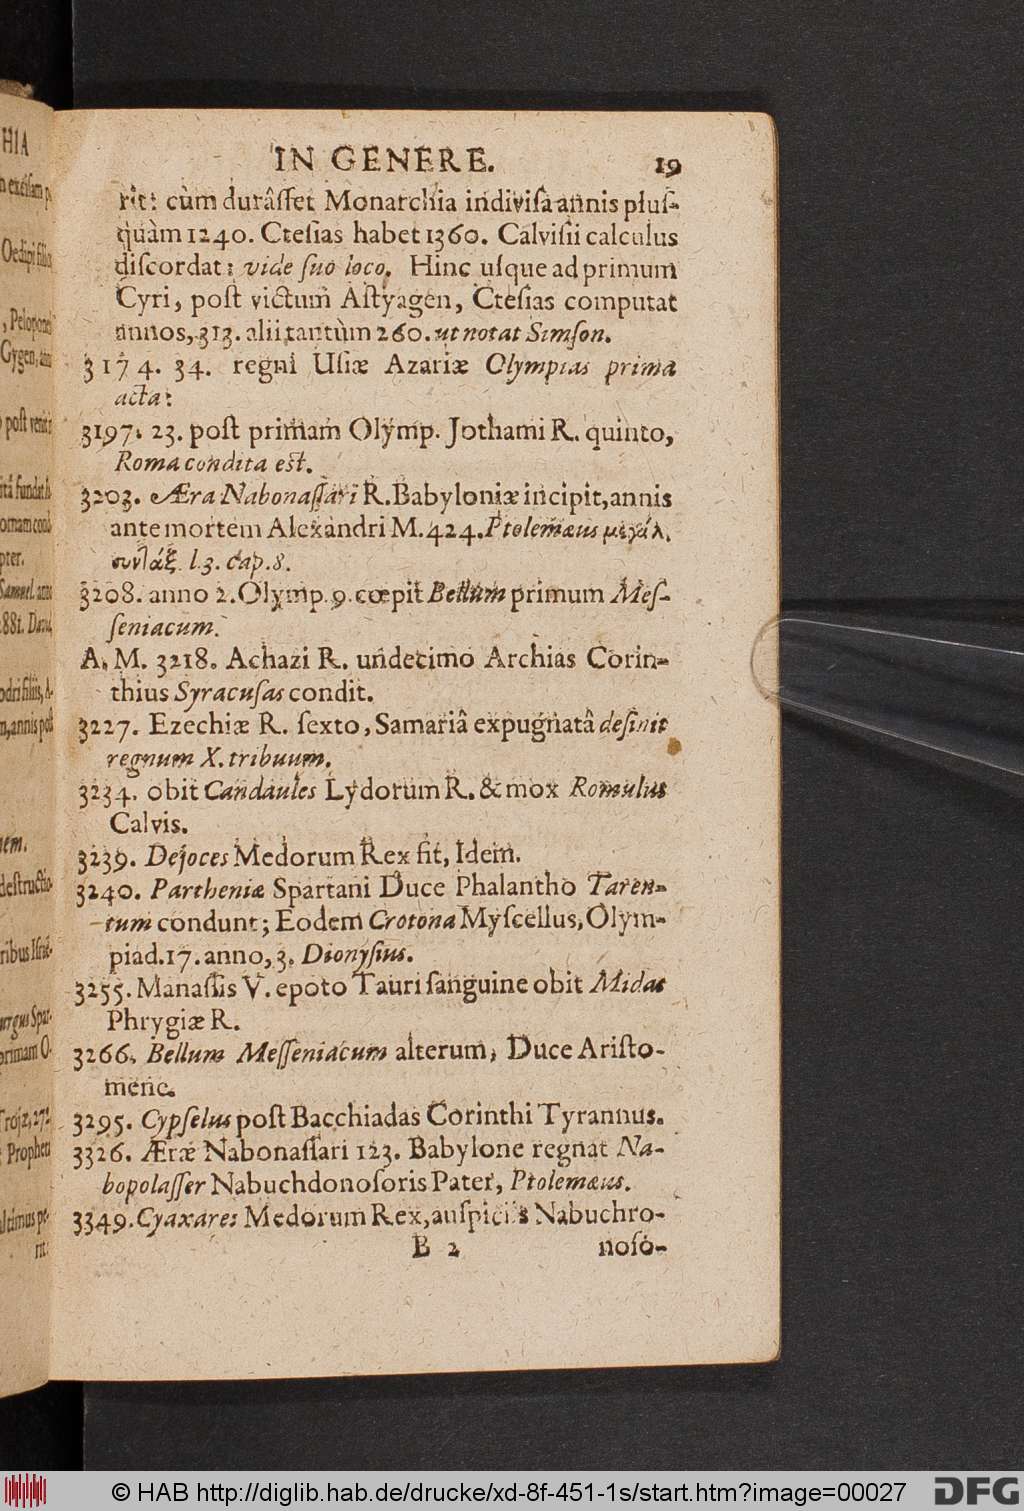 IN GENERE. 19
rit: cùm durâsſet Monarchia indiviſâ annis pluſ-
quàm 1240. Cteſias habet 1360. Calviſii calculus
diſcordat: vide ſuo loco. Hinc uſque ad primum
Cyri, poſt victum Aſtyagen, Cteſias computat
annos, 313. alii tantùm 260. ut notat Simſon.
3174. 34. regni Uſiæ Azariæ Olympias prima
acta:
3197. 23. poſt primam Olymp. Jothami R. quinto,
Roma condita eſt.
3203. Æra Nabonaſſari R. Babyloniæ incipit, annis
ante mortem Alexandri M. 424. Ptolemæus μεγάλ.
συντάξ. l. 3. cap. 8.
3208. anno 2. Olymp. 9. cœpit Bellum primum Meſ-
ſeniacum.
A. M. 3218. Achazi R. undecimo Archias Corin-
thius Syracuſas condit.
3227. Ezechiæ R. ſexto, Samariâ expugnatâ deſinit
regnum X. tribuum.
3234. obit Candaules Lydorum R. & mox Romulus
Calvis.
3239. Dejoces Medorum Rex fit, Idem.
3240. Partheniæ Spartani Duce Phalantho Taren-
tum condunt; Eodem Crotona Myſcellus, Olym-
piad. 17. anno, 3. Dionyſius.
3255. Manaſſis V. epoto Tauri ſanguine obit Midas
Phrygiæ R.
3266. Bellum Meſſeniacum alterum, Duce Ariſto-
mene.
3295. Cypſelus poſt Bacchiadas Corinthi Tyrannus.
3326. Æræ Nabonaſſari 123. Babylone regnat Na-
bopolaſſer Nabuchdonoſoris Pater, Ptolemæus.
3349. Cyaxares Medorum Rex, auſpiciis Nabuchro-
B 2 noſo-
© HAB http://diglib.hab.de/drucke/xd-8f-451-1s/start.htm?image=00027
DFG